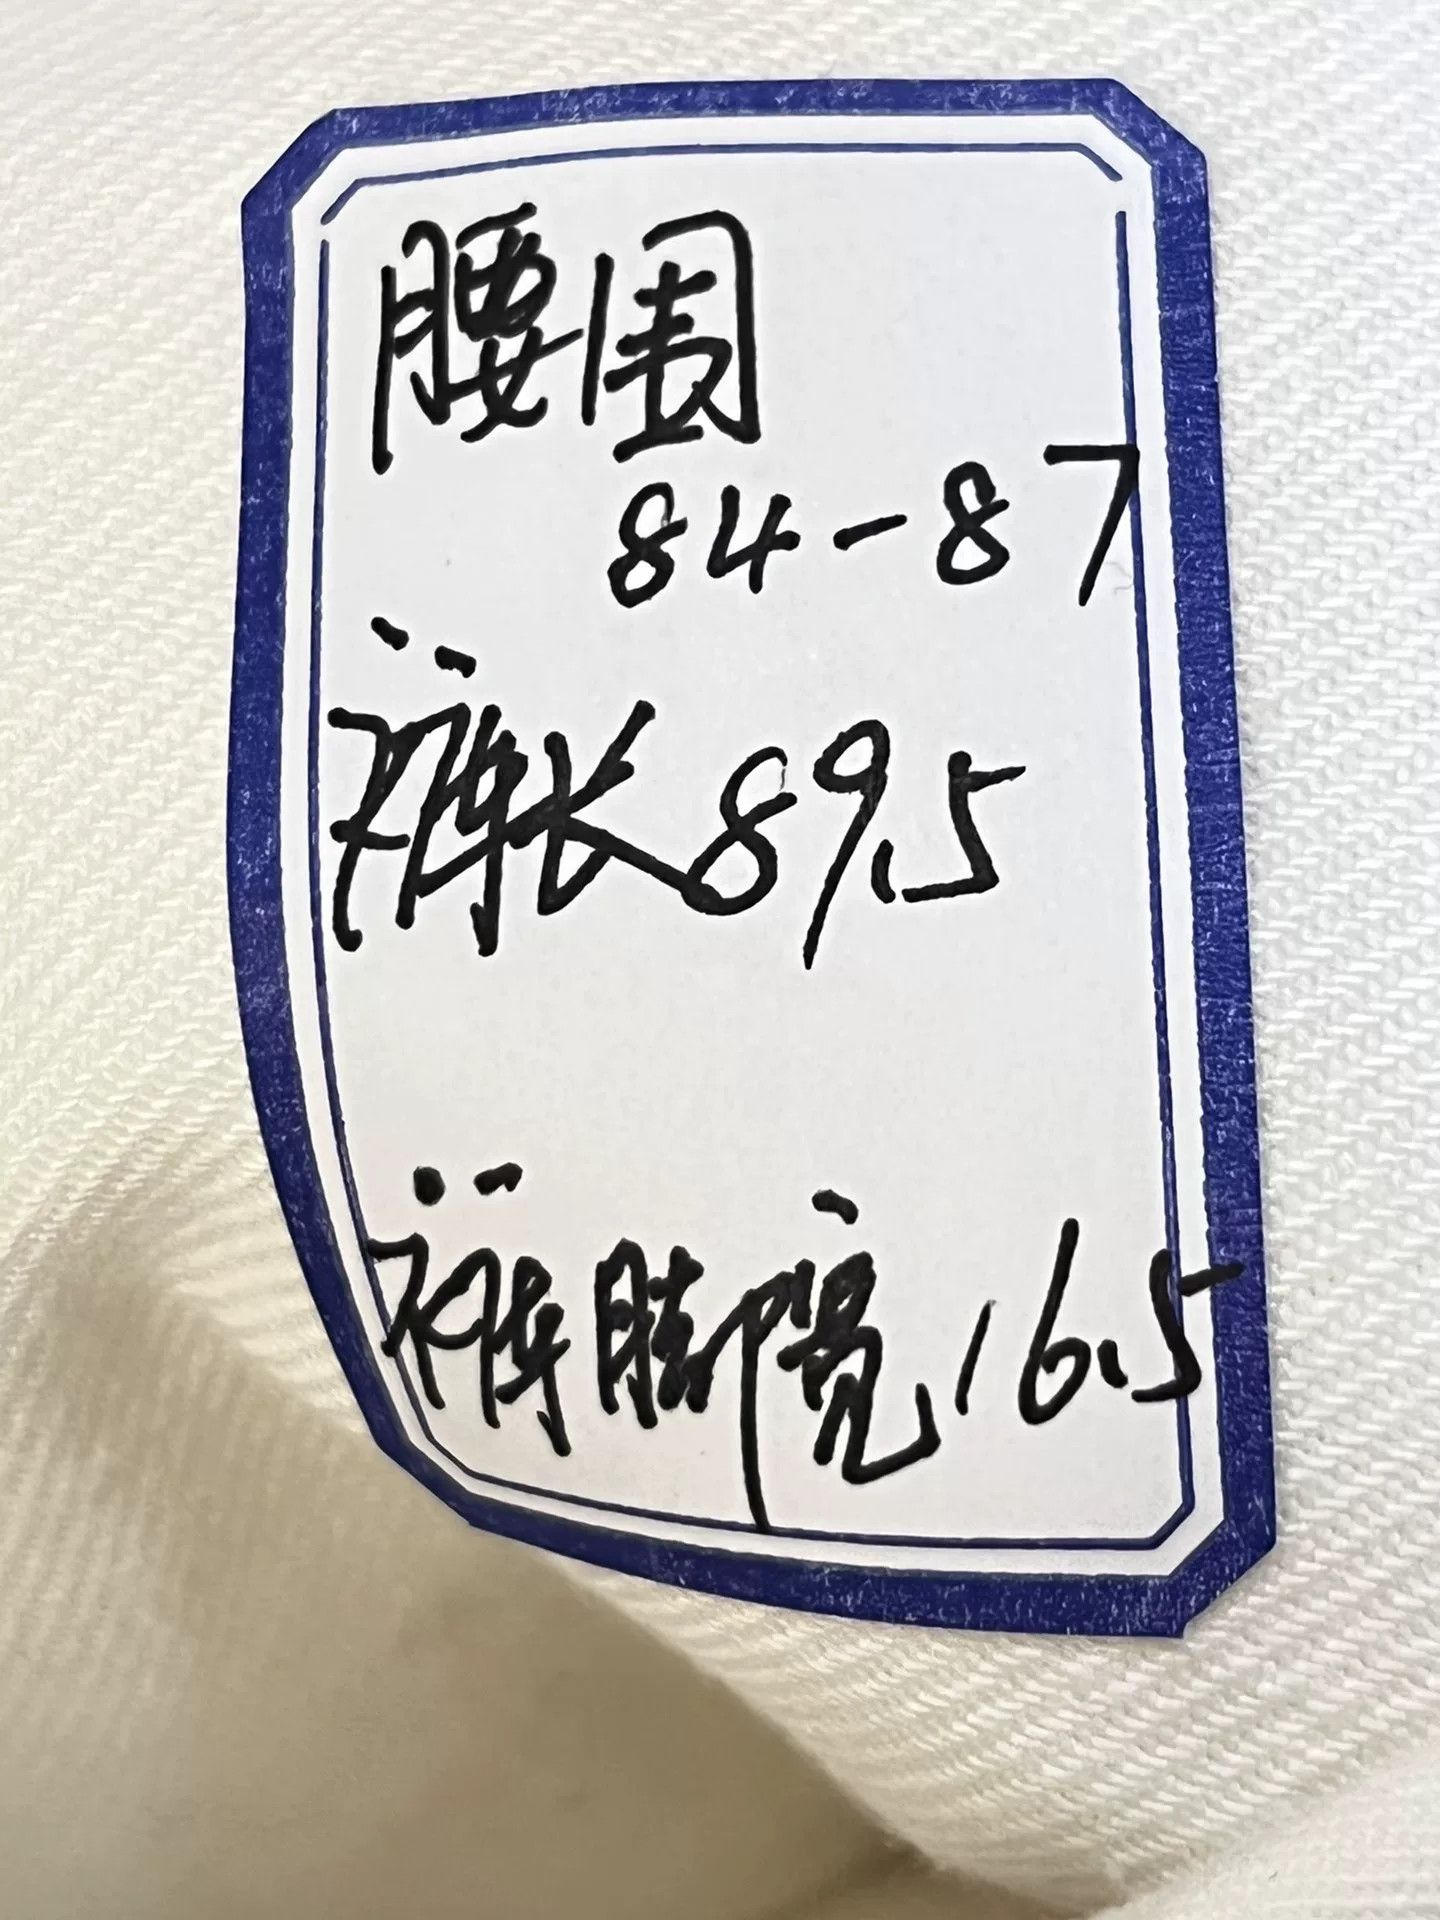 腰围
84-87
裤长89.5
裤脚宽16.5